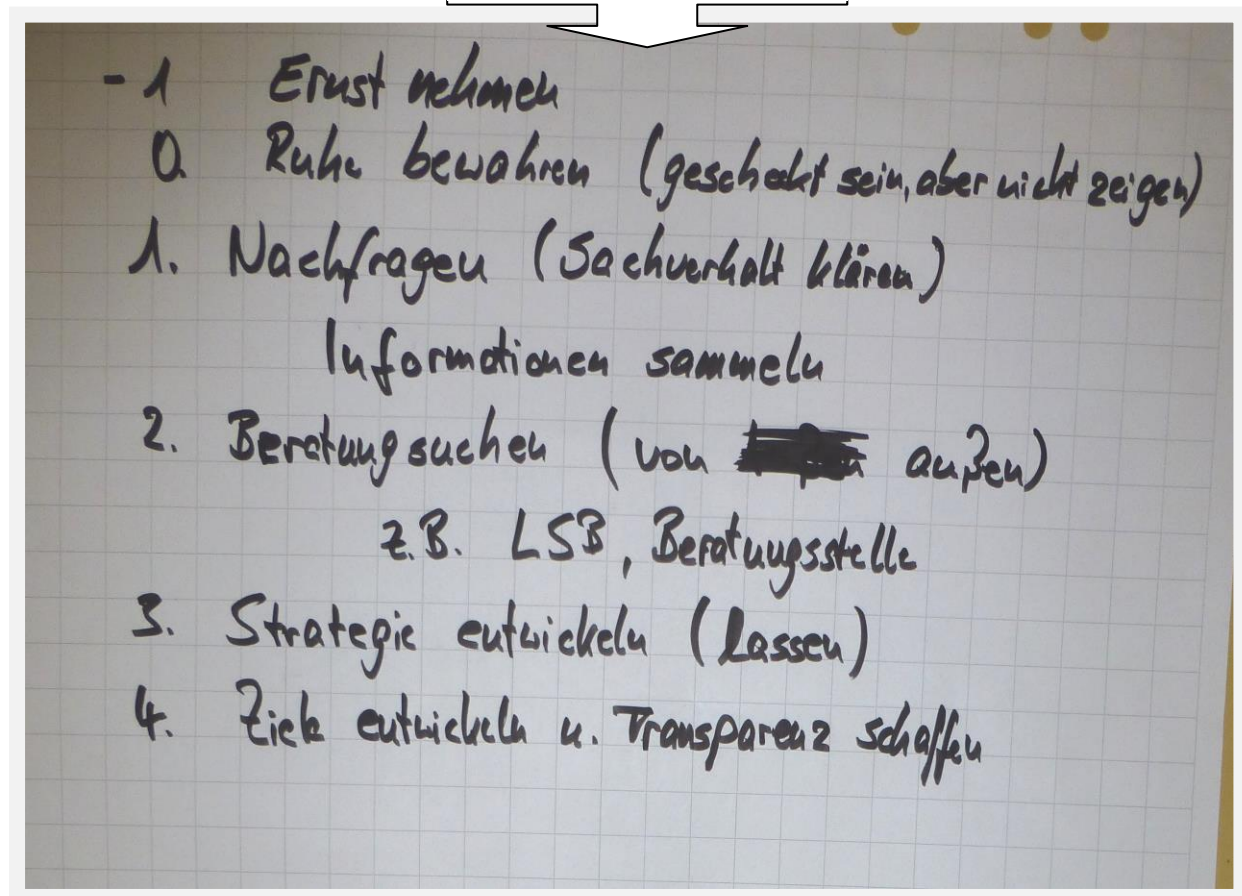 - 1 Ernst nehmen
0. Ruhe bewahren (geschockt sein, aber nicht zeigen)
1. Nachfragen (Sachverhalt klären)
Informationen sammeln
2. Beratung suchen (von außen)
z.B. LSB, Beratungsstelle
3. Strategie entwickeln (lassen)
4. Ziele entwickeln u. Transparenz schaffen